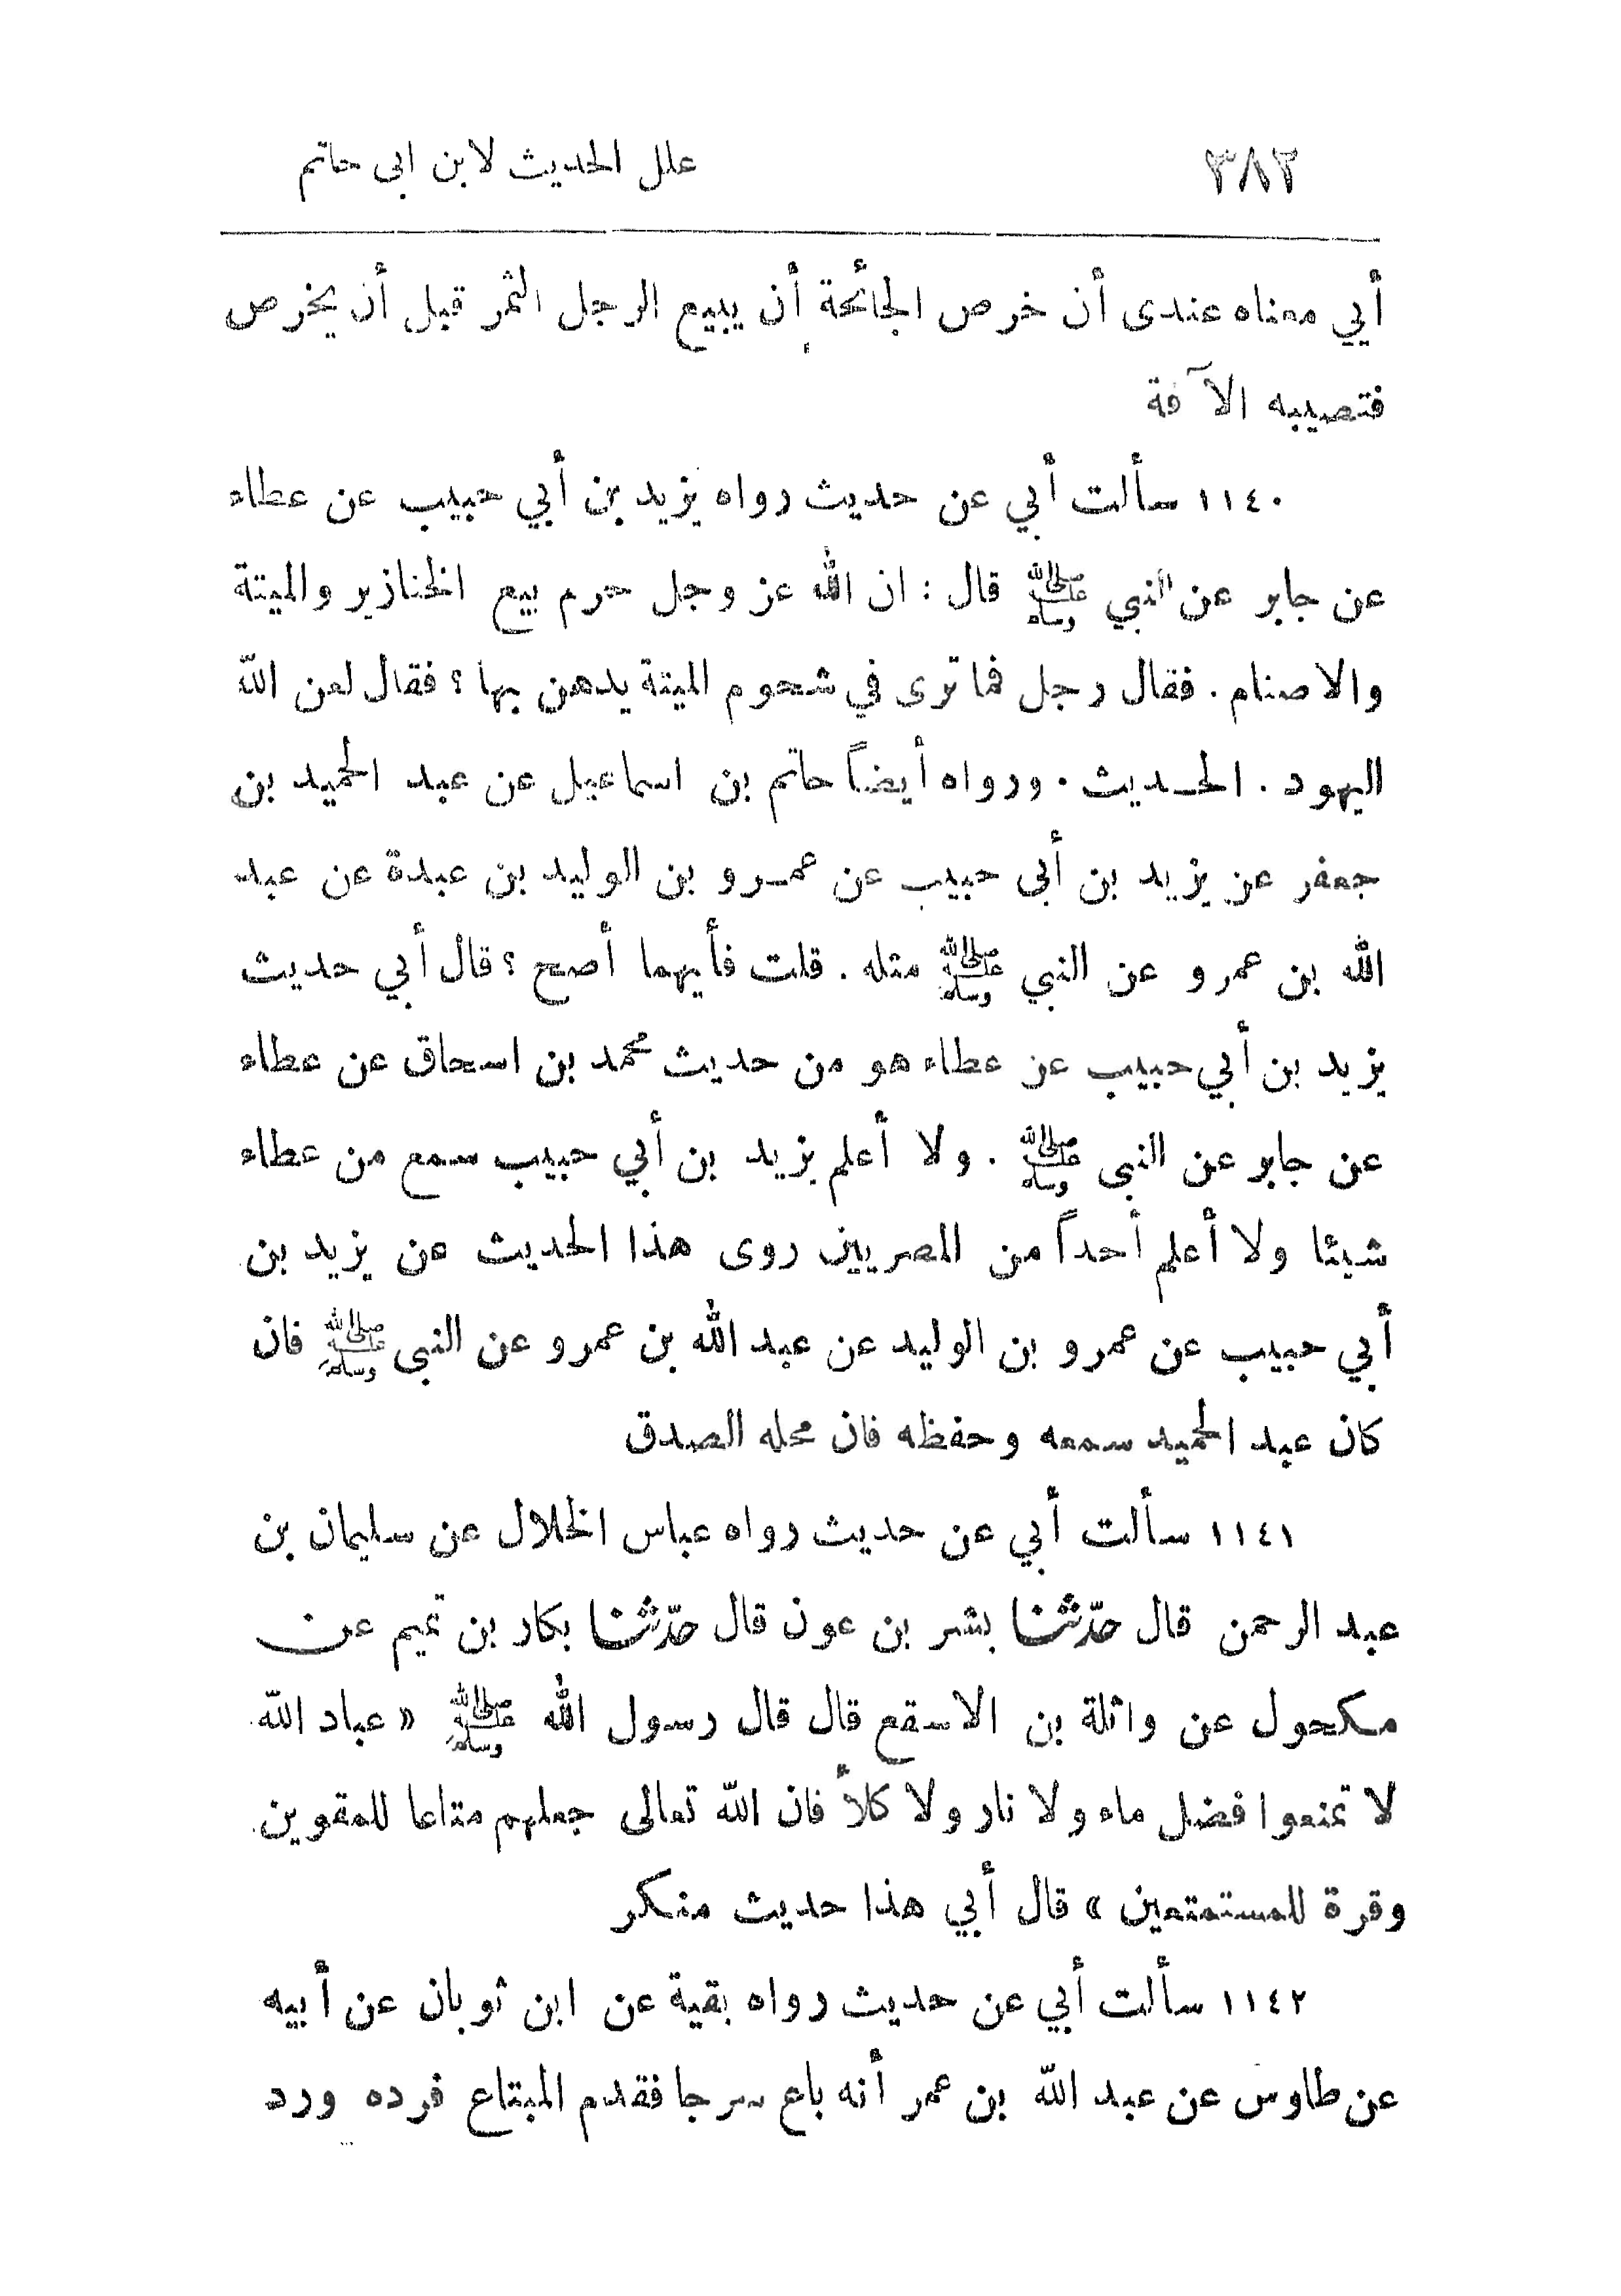 ٣٨٢ علل الحديث لابن ابى حاتم
أبي معناه عندى أن خرص الجائحة أن يبيع الرجل الثمر قبل أن يخرص
فتصيبه الآفة
١١٤٠ سألت أبي عن حديث رواه يزيد بن أبي حبيب عن عطاء
عن جابر عن النبي ﷺ قال : ان الله عز وجل حرم بيع الخنازير والميتة
والاصنام . فقال رجل فما ترى في شحوم الميتة يدهن بها ؟ فقال لعن الله
اليهود . الحديث . ورواه أيضاً حاتم بن اسماعيل عن عبد الحميد بن
جعفر عن يزيد بن أبى حبيب عن عمرو بن الوليد بن عبدة عن عبد
الله بن عمرو عن النبي ﷺ مثله . قلت فأيهما أصح ؟ قال أبي حديث
يزيد بن أبي حبيب عن عطاء هو من حديث محمد بن اسحاق عن عطاء
عن جابر عن النبى ﷺ . ولا أعلم يزيد بن أبي حبيب سمع من عطاء
شيئا ولا أعلم أحداً من المصريين روى هذا الحديث عن يزيد بن
أبي حبيب عن عمرو بن الوليد عن عبد الله بن عمرو عن النبى ﷺ فان
كان عبد الحميد سمعه وحفظه فان محله الصدق
١١٤١ سألت أبي عن حديث رواه عباس الخلال عن سليمان بن
عبد الرحمن قال حدّثنا بشر بن عون قال حدّثنا بكار بن تميم عن
مكحول عن واثلة بن الاسقع قال قال رسول الله ﷺ « عباد الله
لا تمنعوا فضل ماء ولا نار ولا كلأ فان الله تعالى جعلهم متاعا للمقوين
وقرة للمستمتعين » قال أبي هذا حديث منكر
١١٤٢ سألت أبي عن حديث رواه بقية عن ابن ثوبان عن أبيه
عن طاوس عن عبد الله بن عمر أنه باع سرجا فقدم المبتاع فرده ورد